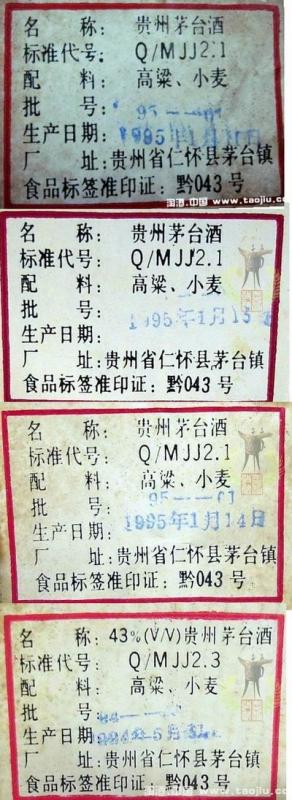 名 称: 贵州茅台酒
标准代号: Q/MJJ2.1
配 料: 高粱、小麦
批 号:
生产日期: 1995
厂 址: 贵州省仁怀县茅台镇
食品标签准印证: 黔043号
www.taojiu.com
名 称: 贵州茅台酒
标准代号: Q/MJJ2.1
配 料: 高粱、小麦
批 号:
生产日期: 1995年1月15
厂 址: 贵州省仁怀县茅台镇
食品标签准印证: 黔043号
名 称: 贵州茅台酒
标准代号: Q/MJJ2.1
配 料: 高粱、小麦
批 号: 95—01
生产日期: 1995年1月14日
厂 址: 贵州省仁怀县茅台镇
食品标签准印证: 黔043号
名 称: 43%(V/V)贵州茅台酒
标准代号: Q/MJJ2.3
配 料: 高粱、小麦
批 号:
生产日期:
厂 址: 贵州省仁怀县茅台镇
食品标签准印证: 黔043号
www.taojiu.com